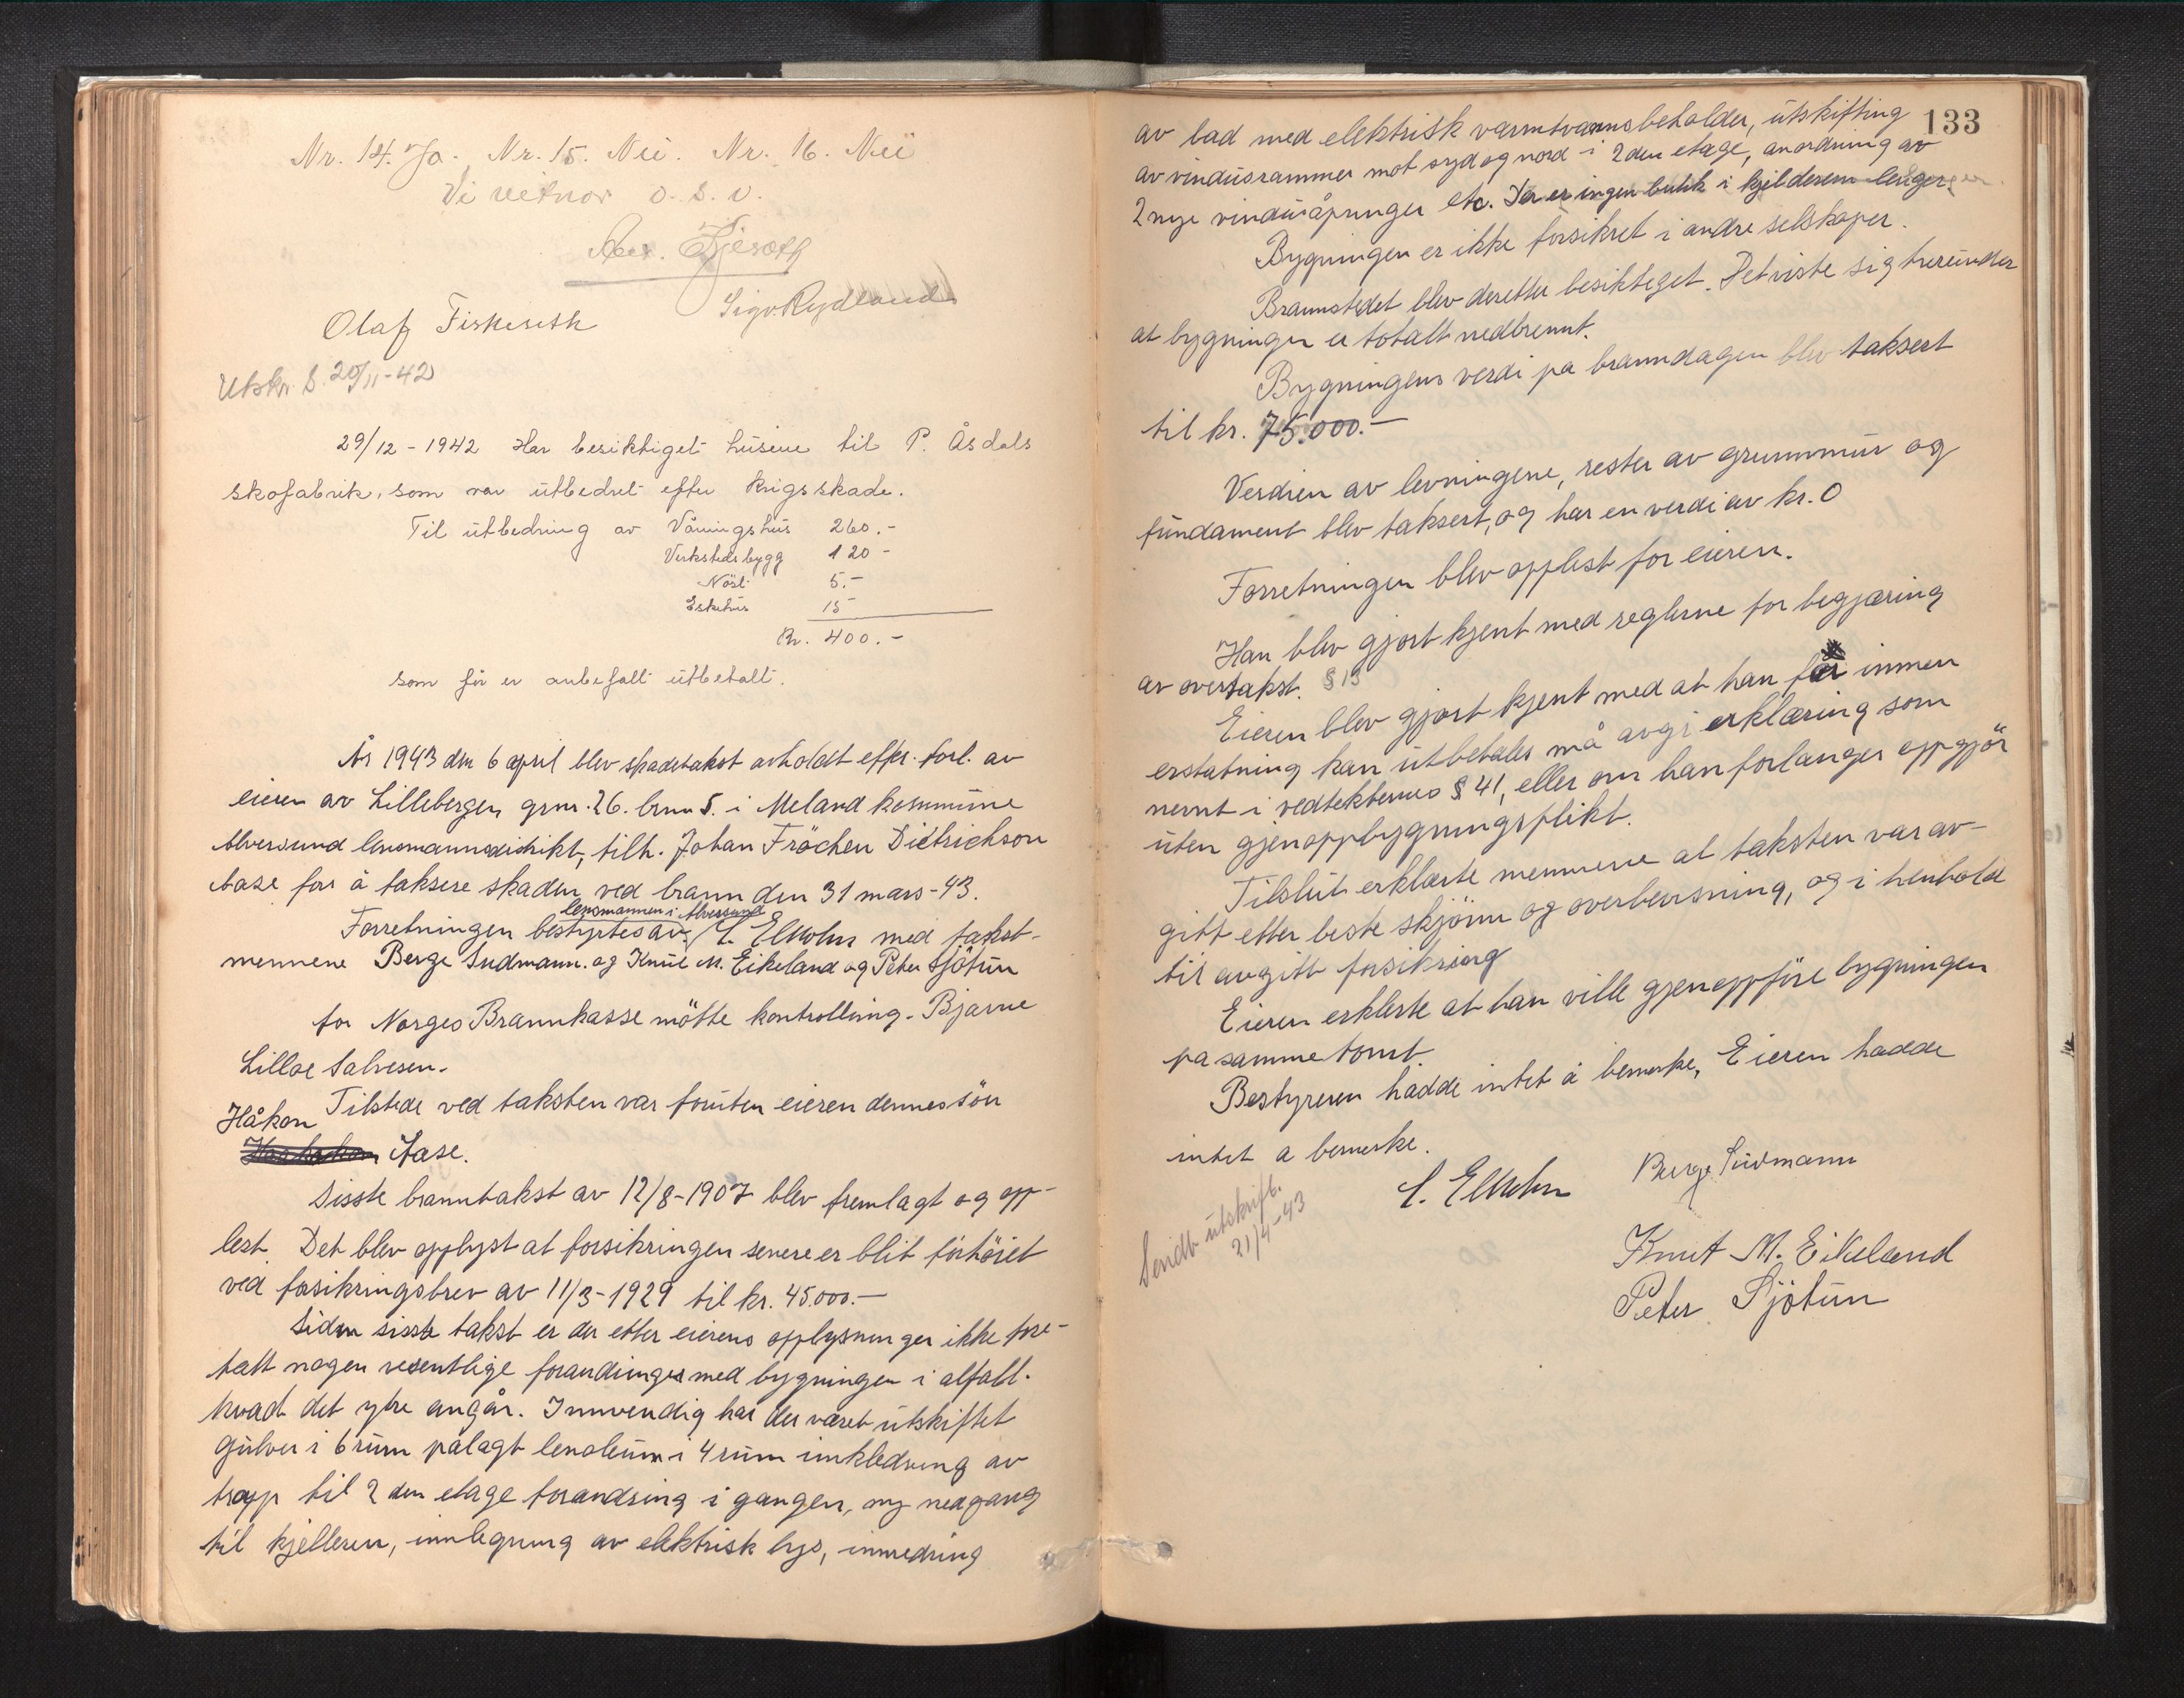 Nr. 14. Ja. Nr. 15. Nei. Nr. 16. Nei
Vi vitnar o. s. v.
Olaf Fiskeseth Sigv. Rydland
Utskr. S. 20/11-42
29/12 - 1942 Har besiktiget husene til P. Åsdals
skofabrik, som var utbedret efter krigsskade.
Til utbedring av Våningshus 260.-
Verkstedsbygg 120 -
Nöst 5.-
Eskehus 15 -
Kr. 400.-
som för er anbefalt utbetalt.
År 1943 den 6 april blev skadetakst avholdt efter forl. av
eieren av Lillebergen grnr. 26. brnr 5. i Meland kommune
Alversund lensmannsdistrikt, tilh. Johan Fröchen Dietrichson
Aase for å taksere skaden ved brann den 31 mars - 43.
lensmannen i Alversund
Forretningen bestyrtes av E. Elholm med takst-
mennene Berge Sudmann. og Knut M. Eikeland og Peter Sjötun
for Norges Brannkasse mötte kontrolling. Bjarne
Lilloe Salvesen.
Tilstede ved taksten var foruten eieren dennes sön
Håkon
Aase.
Sisste branntakst av 12/8-1907 blev fremlagt og opp-
lest. Det blev opplyst at forsikringen senere er blit forhöiet
ved forsikringsbrev av 11/3-1929 til kr. 45.000.-
Siden sisste takst er der etter eierens opplysninger ikke fore-
tatt nogen vesentlige forandringer med bygningen i alfall.
hvad det ytre angår. Innvendig har der været utskiftet
gulver i 6 rum pålagt lenoleum i 4 rum innkledning av
trapp til 2 den etage forandring i gangen, ny nedgang
til kjelleren, innlegning av elektrisk lys, innredning
133
av bad med elektrisk varmtvannsbeholder, utskifting
av vindusrammer mot syd og nord i 2den etage, anordning av
2 nye vindusåpninger etc. Der er ingen butik i kjelderen lenger.
Bygningen er ikke forsikret i andre selskaper.
Brannstedet blev deretter besikteget. Det viste sig hereunder
at bygningen er totalt nedbrennt.
Bygningens verdi på branndagen blev taksert
til kr. 75.000.-
Verdien av levningene, rester av grunnmur og
fundament blev taksert, og har en verdi av kr. 0
Forretningen blev opplest for eieren.
Han blev gjort kjent med reglerne for begjæring
av overtakst. § 13
Eieren blev gjort kjent med at han før innen
erstatning kan utbetales må avgi erklæring som
nevnt i vedtekternes § 41, eller om han forlanger oppgjör
uten gjenoppbygningsplikt.
Tilslut erklærte mennene at taksten var av-
gitt etter beste skjönn og overbevisning, og i henhold
til avgitt forsikring
Eieren erklerte at han ville gjenoppföre bygningen
på samme tomt
Bestyreren hadde intet å bemerke, Eieren hadde
intet å bemerke.
E. Elholm Berge Sudmann
Sendt utskrift.
21/4-43
Knut M. Eikeland
Peter Sjötun